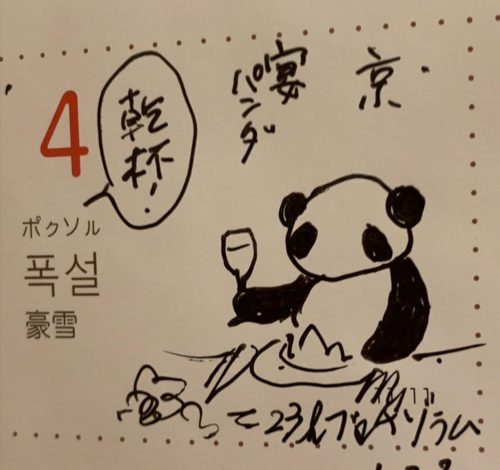 4
乾杯!
宴
パンダ
京
ポクソル
폭설
豪雪